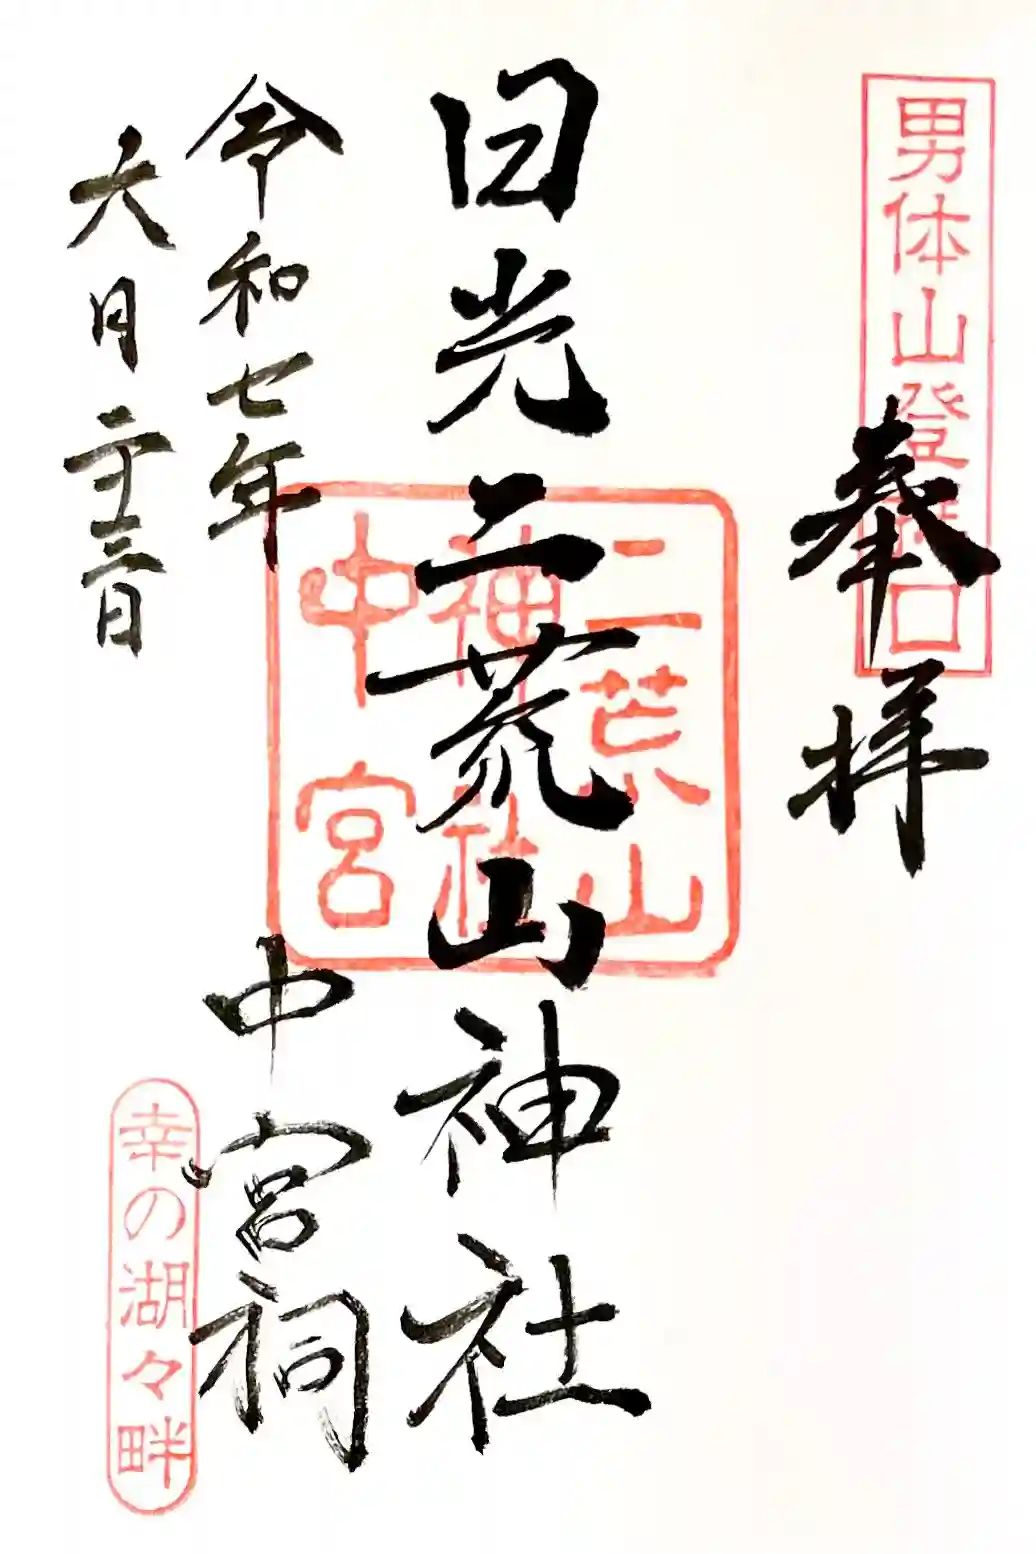 男体山登拝口
奉拝
日光二荒山神社
二荒山
神社
中宮
中宮祠
令和七年
六月二十三日
幸の湖々畔